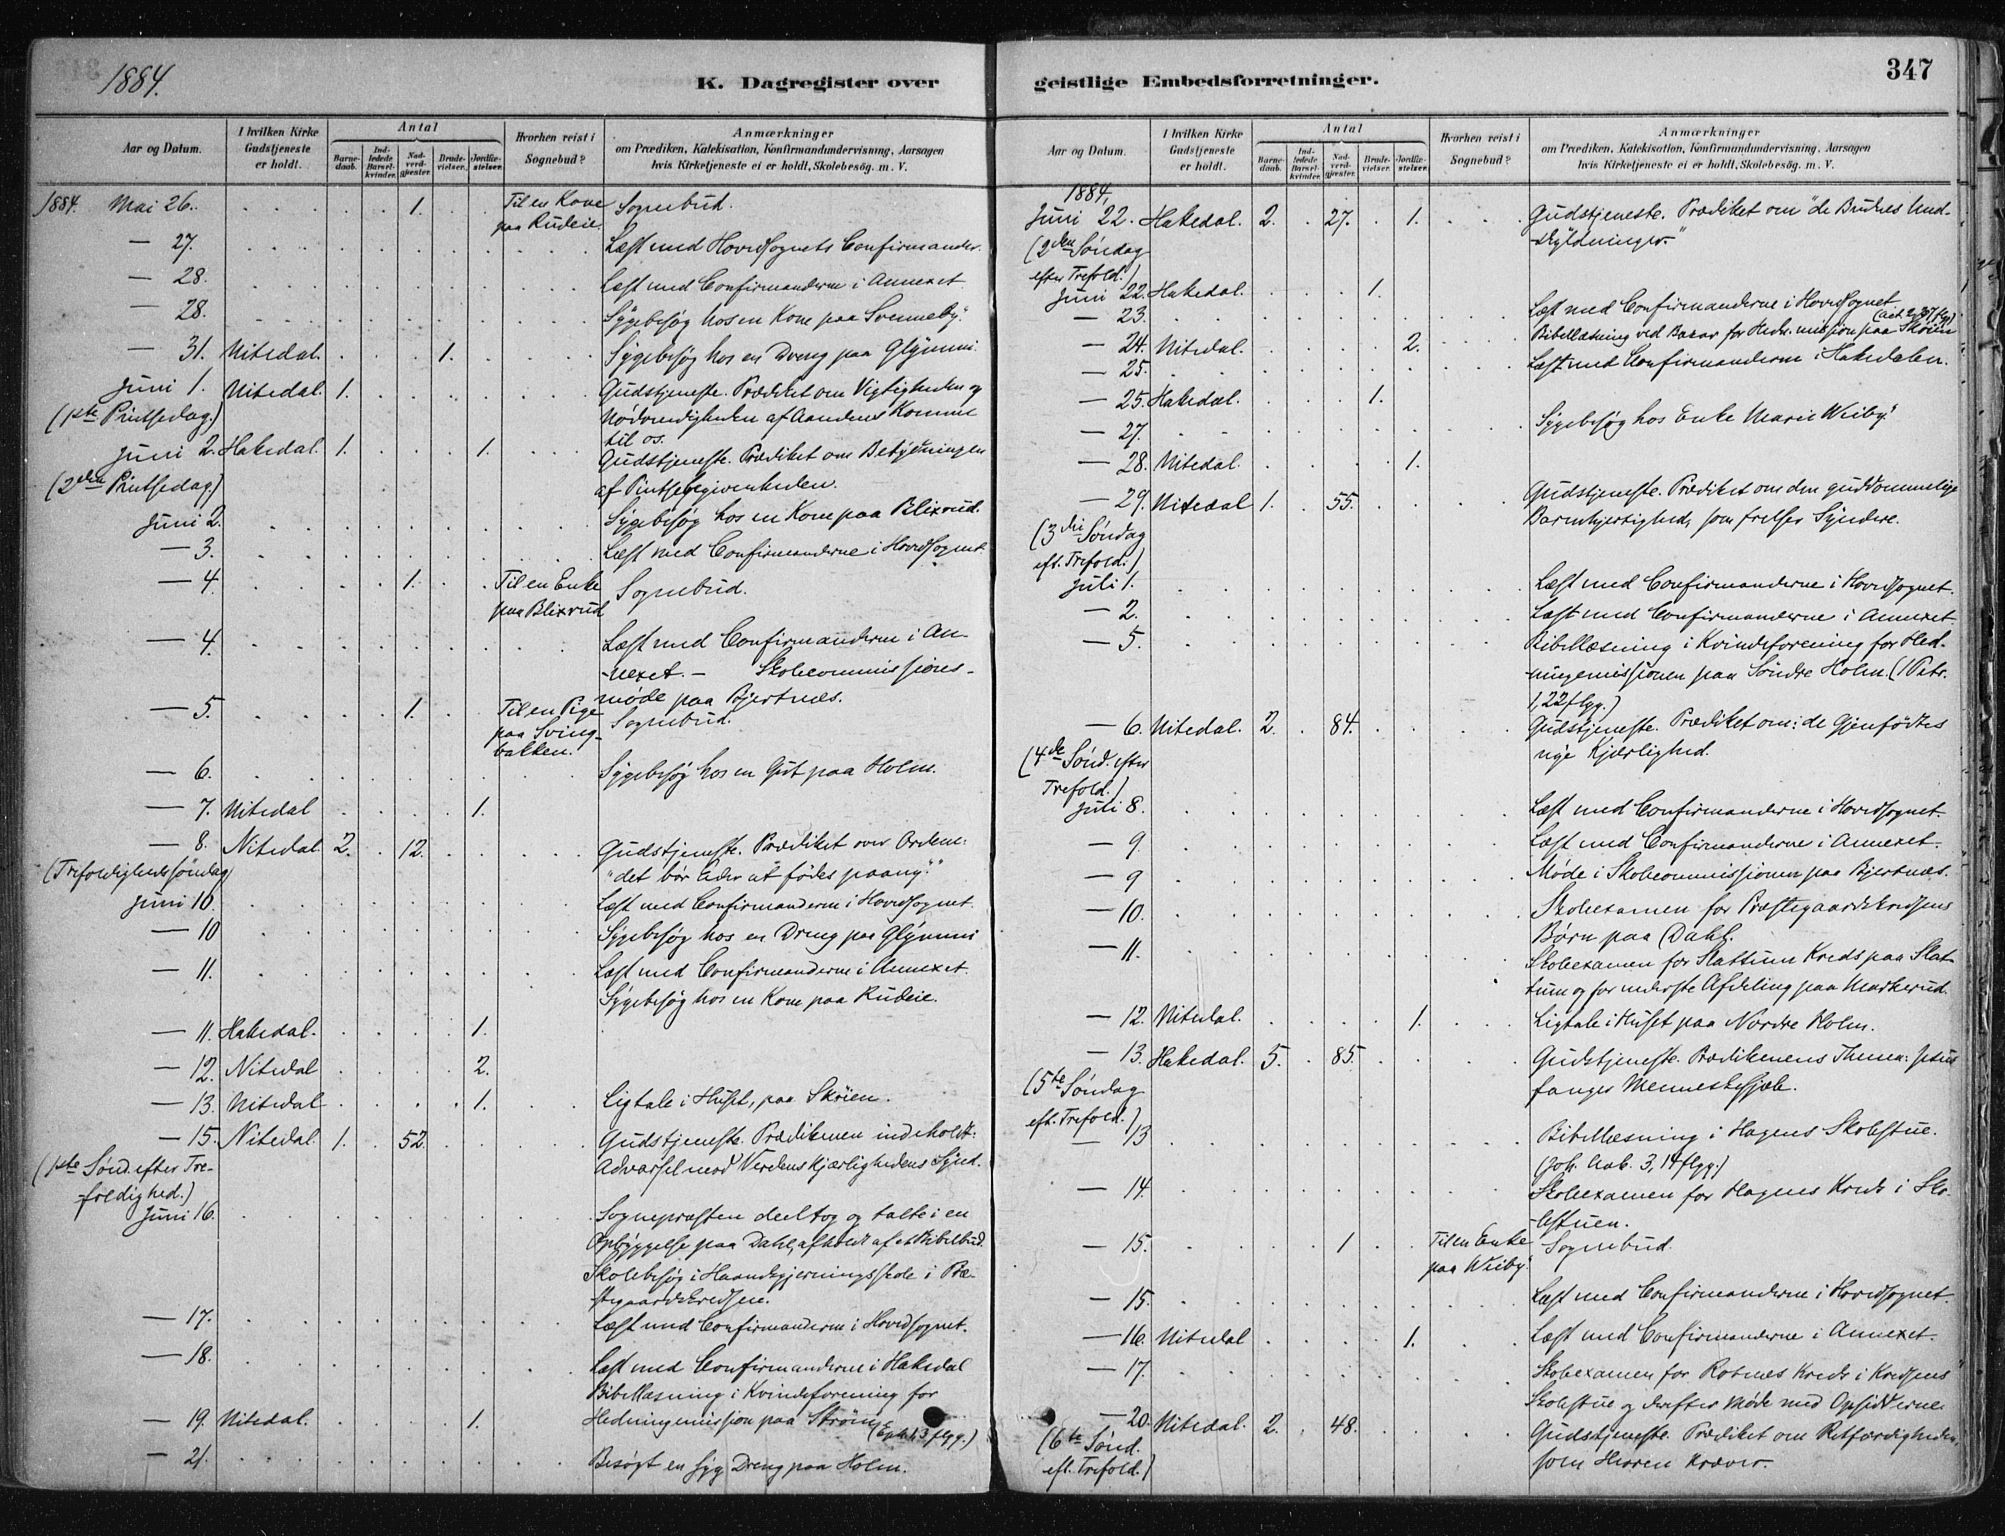 1884.
K. Dagregister over
Aar og Datum. I hvilken Kirke Gudstjeneste er holdt. Antal Barne-daab. Ind-ledede Barsel-kvinder. Nad-verd-gjæster. Brude-vielser. Jordfæ-stelser. Hvorhen reist i Sognebud? Anmærkninger
om Prædiken, Katekisation, Konfirmandundervisning, Aarsagen
hvis Kirketjeneste ei er holdt, Skolebesög. m. V.
1884. Mai 26. 1. Til en Kone Sognebud.
paa Rudeie.
— 27. Læst med Hovedsognets Confirmander.
— 28. Læst med Confirmanderne i Annexet
— 28. Sygebesøg hos en Kone paa Svenneby.
— 31. Nitedal. 1. Sygebesøg hos en Dreng paa Glymmi
Juni 1. Nitedal. 1. Gudstjeneste. Prædiket om Vigtigheden og
(1ste Pintsedag.) Nødvendigheden af Aandens Komme
til os.
Juni 2. Hakedal. 1. 1. Gudstjeneste. Prædiket om Betydningen
(2den Pintsedag.) af Pintsebegivenheden.
Juni 2. Sygebesøg hos en Kone paa Blixrud.
— 3. Læst med Confirmanderne i Hovedsognet.
— 4. 1. Til en Enke Sognebud.
paa Blixrud
— 4. Læst med Confirmanderne i An-
-nexet. — Skolecommissions-
møde paa Bjertnæs.
— 5. 1. Til en Pige Sognebud.
paa Sving-
bakken.
— 6. Sygebesøg hos en Gut paa Holm.
— 7. Nitedal 1.
— 8. Nitedal. 2. 12. Gudstjeneste. Prædiket over Ordene:
(Trefoldighedssøndag) "det bør Eder at fødes paany."
Juni 10. Læst med Confirmanderne i Hovedsognet.
— 10 Sygebesøg hos en Dreng paa Glymmi
— 11. Læst med Confirmanderne i Annexet.
Sygebesøg hos en Kone paa Rudeie.
— 11. Hakedal. 1.
— 12. Nitedal 2.
— 13. Nitedal 1. Ligtale i Huset, paa Skøien.
— 15. Nitedal. 1. 52. Gudstjeneste. Prædikenen indeholdt:
(1ste Sønd. efter Tre- Advarsel mod Verdenskjærlighedens Synd.
-foldighed.)
Juni 16. Sognepræsten deeltog og talte i en
Opbyggelse paa Dahl, afholdt af et Bibelbud.
Skolebesøg i Haandgjerningsskole i Præ-
stegaardskredsen.
— 17. Læst med Confirmanderne i Hovedsognet.
— 18. Læst med Confirmanderne i Hakedal
Bibellæsning i Kvindeforening for
— 19. Nitedal. 1. Hedningemission paa Strøm
— 21. Besøgt en syg Dreng paa Holm.
geistlige Embedsforretninger.
347
Aar og Datum. I hvilken Kirke Gudstjeneste er holdt. Antal Barne-daab. Ind-ledede Barsel-kvinder. Nad-verd-gjæster. Brude-vielser. Jordfæ-stelser. Hvorhen reist i Sognebud? Anmærkninger
om Prædiken, Katekisation, Konfirmandundervisning. Aarsagen
hvis Kirketjeneste ei er holdt, Skolebesög. m. V.
1884.
Juni 22. Hakedal. 2. 27. 1. Gudstjeneste. Prædiket om "de Budnes Und-
(2den Søndag -skyldninger."
efter Trefold.)
Juni 22. Hakedal. 1.
— 23. Læst med Confirmanderne i Hovedsognet
— 24. Nitedal. 2. Bibellæsning ved Bazar for Hedn. mission paa Skøien
— 25. Læst med Confirmanderne i Hakedalen.
— 25. Hakedal. 1.
— 27. Sygebesøg hos Enke Marie Weiby.
— 28. Nitedal. 1.
— 29. Nitedal 1. 55. Gudstjeneste. Prædiket om den guddommelige
(3die Søndag Barmhjertighed, som frelser Syndere.
eft. Trefold.)
Juli 1. Læst med Confirmanderne i Hovedsognet.
— 2. Læst med Confirmanderne i Annexet
— 5. Bibellæsning i Kvindeforening for Hed-
-ningemissionen paa Søndre Holm. (1 Petr.
1, 22 flgg.)
— 6. Nitedal. 2. 84. Gudstjeneste. Prædiket om: de Gjenfødtes
(4de Sønd. efter nye Kjærlighed.
Trefold.)
Juli 8. Læst med Confirmanderne i Hovedsognet.
— 9. Læst med Confirmanderne i Annexet.
— 9 Møde i Skolecommissionen paa Bjertnæs.
— 10. Skolexamen for Præstegaardskredsens
Børn paa Dahl.
— 11. Skolexamen for Slattum Kreds paa Slat-
tum og for nederste Afdeling paa Markerud.
— 12. Nitedal. 1. Ligtale i Huset paa Nordre Holm.
— 13. Hakedal. 5. 85. Gudstjeneste. Prædikenens Thema: Jesus
(5te Søndag fanger Menneskesjæle.
eft. Trefold.)
— 13 Bibellæsning i Hagens Skolestue.
(Joh. Aab. 3, 14 flgg.)
— 14. Skolexamen for Hagens Kreds i Sko-
lestuen.
— 15. 1 Til en Enke Sognebud.
paa Weiby.
— 15. Læst med Confirmanderne i Hovedsognet.
— 16. Nitedal 1. Læst med Confirmanderne i Annexet.
— 17. Skolexamen for Rotnæs Kreds i Kredsens
Skolestue og derefter Møde med Opsidderne
— 20. Nitedal. 2. 48. Gudstjeneste. Prædiket om Retfærdigheden,
(6te Sønd. som Herren kræver.
eft. Trefold.)